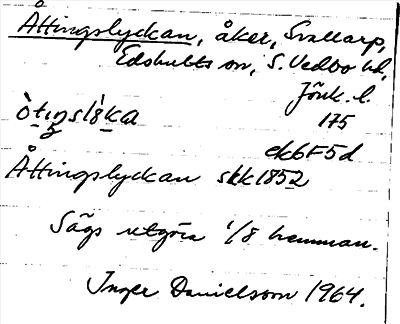 Åttingslyckan, åker, Svallarp,
Edshults sn, S. Vedbo hd,
Jönk. l.
175
òtıŋslỳka
ek6F5d
Åttingslyckan skk1852
Sägs utgöra 1/8 hemman.
Inger Danielsson 1964.